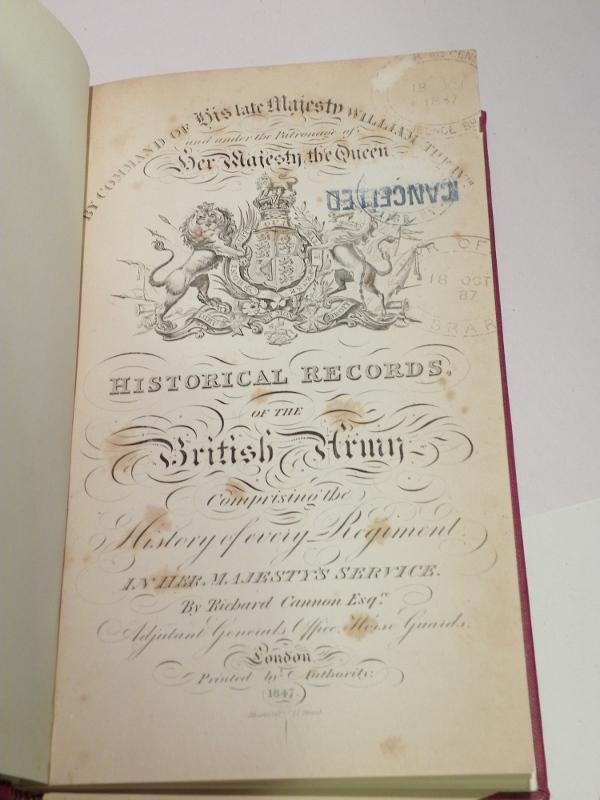 BY COMMAND OF His late Majesty WILLIAM THE IVTH
and under the Patronage of
Her Majesty the Queen
CANCELLED
18 OCT
1887
18 OCT
87
HISTORICAL RECORDS,
OF THE
British Army
Comprising the
History of every Regiment
IN HER MAJESTY'S SERVICE.
By Richard Cannon Esqre.
Adjutant Generals Office, Horse Guards.
London
Printed by Authority:
1847.